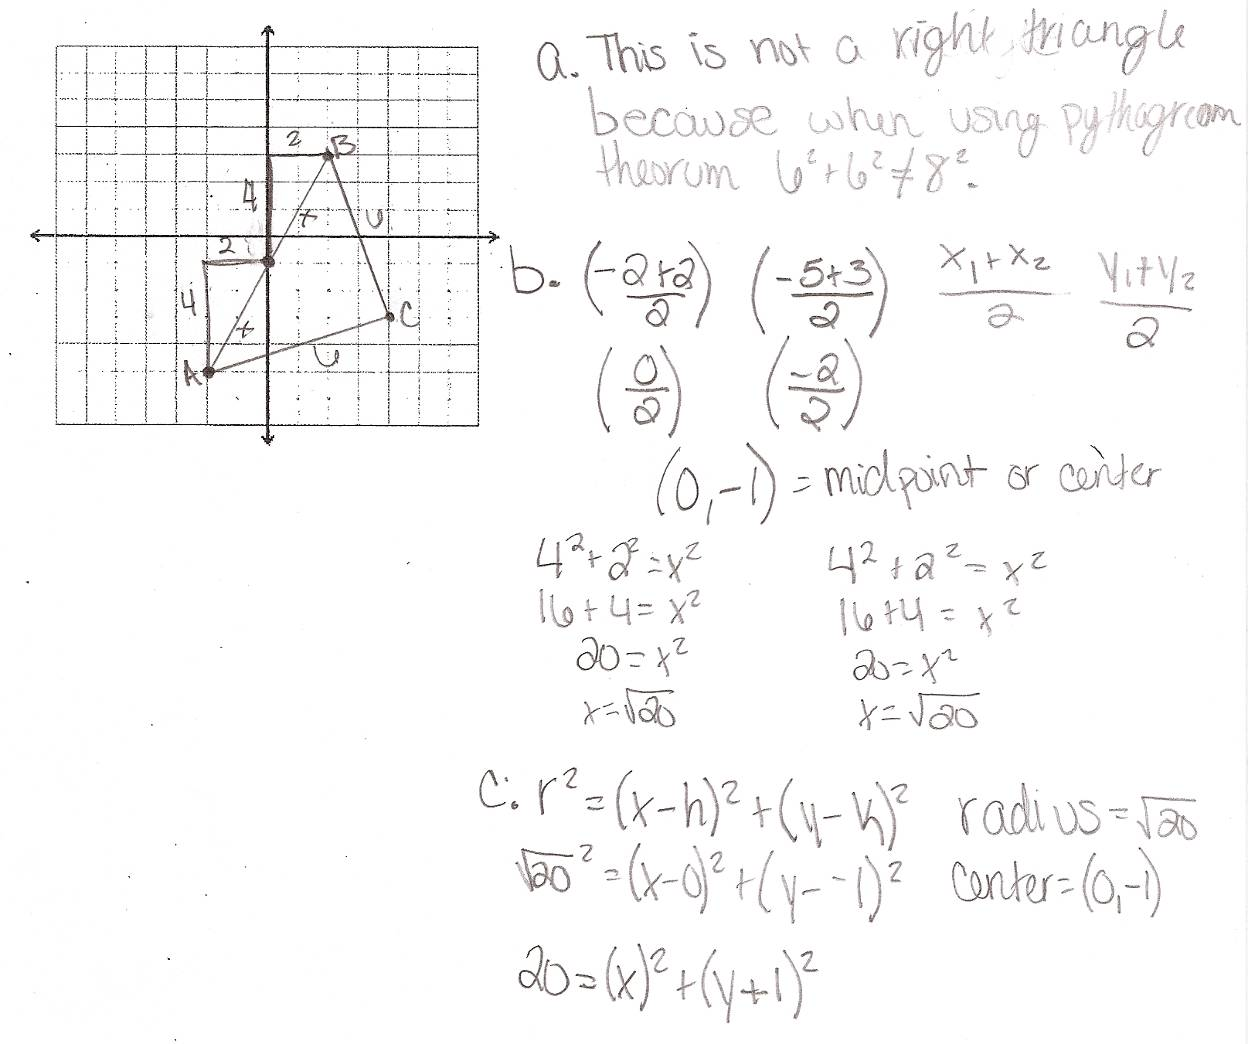 2 B
4
x 6
2
4
x
C
6
A
a. This is not a right triangle
because when using pythagream
theorum 6²+6²≠8².
b. (-2+2/2) (-5+3/2) x₁+x₂/2 y₁+y₂/2
(0/2) (-2/2)
(0,-1) = midpoint or center
4²+2²=x² 4²+2²=x²
16+4=x² 16+4=x²
20=x² 20=x²
x=√20 x=√20
C. r²=(x-h)²+(y-k)² radius=√20
√20²=(x-0)²+(y--1)² center=(0,-1)
20=(x)²+(y+1)²